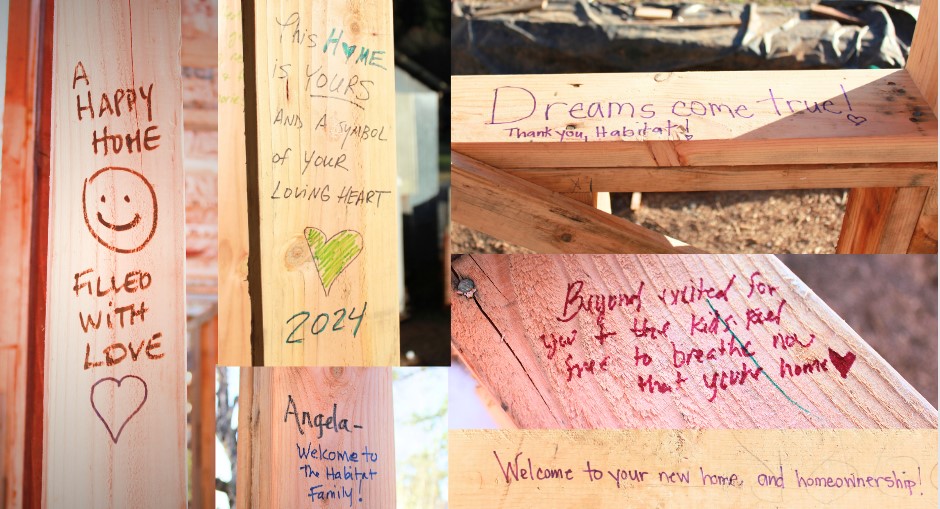 A
HAPPY
HOME
FILLED
WITH
LOVE
This HOME
is YOURS
AND A SYMBOL
of YOUR
LOVING HEART
2024
Angela-
Welcome to
The Habitat
Family!
Dreams come true!
Thank you, Habitat!
Beyond excited for
you + the kids. Feel
free to breathe now
that you're home
Welcome to your new home, and homeownership!